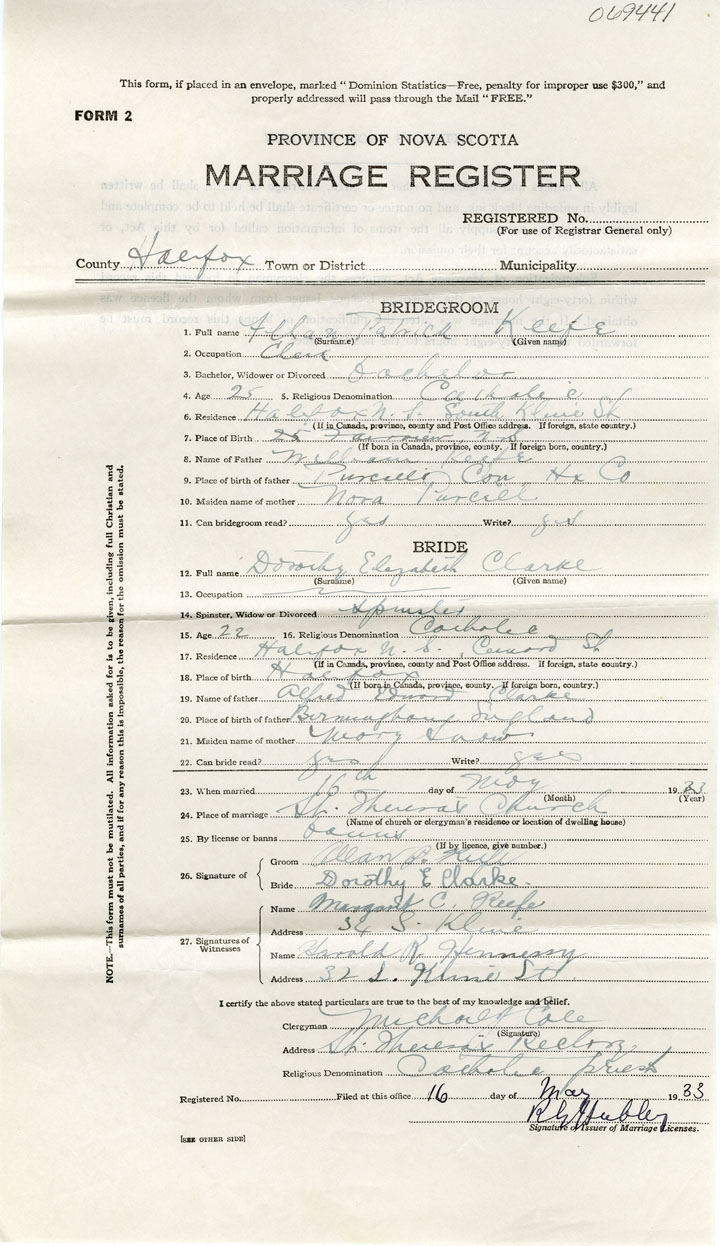 069441
This form, if placed in an envelope, marked "Dominion Statistics—Free, penalty for improper use $300," and
properly addressed will pass through the Mail "FREE."
FORM 2
PROVINCE OF NOVA SCOTIA
MARRIAGE REGISTER
REGISTERED No.
(For use of Registrar General only)
County Halifax Town or District Municipality
BRIDEGROOM
1. Full name Allan Patrick Keefe
(Surname) (Given name)
2. Occupation Clerk
3. Bachelor, Widower or Divorced bachelor
4. Age 25 5. Religious Denomination Catholic
6. Residence Halifax N.S. South Kline St
(If in Canada, province, county and Post Office address. If foreign, state country.)
7. Place of Birth 25 N.S.
(If born in Canada, province, county. If foreign born, country.)
8. Name of Father William Keefe
9. Place of birth of father Purcells Cove Hx Co
10. Maiden name of mother Nora Purcell
11. Can bridegroom read? yes Write? yes
BRIDE
12. Full name Dorothy Elizabeth Clarke
(Surname) (Given name)
13. Occupation
14. Spinster, Widow or Divorced Spinster
15. Age 22 16. Religious Denomination Catholic
17. Residence Halifax N.S. Cunard St
(If in Canada, province, county and Post Office address. If foreign, state country.)
18. Place of birth Halifax
(If born in Canada, province, county. If foreign born, country.)
19. Name of father Alfred Edward Clarke
20. Place of birth of father Birmingham England
21. Maiden name of mother Mary Snow
22. Can bride read? yes Write? yes
23. When married 16th day of May 1933
(Month) (Year)
24. Place of marriage St. Theresa's Church
(Name of church or clergyman's residence or location of dwelling house)
25. By license or banns banns
(If by licence, give number.)
26. Signature of
Groom Allan P. Keefe
Bride Dorothy E Clarke.
27. Signatures of Witnesses
Name Margaret C. Keefe
Address 34 S. Kline
Name Harold R. Hennessy
Address 32 S. Kline St.
I certify the above stated particulars are true to the best of my knowledge and belief.
Clergyman Michael Cole
(Signature)
Address St. Theresa's Rectory
Religious Denomination Catholic priest
Registered No. Filed at this office 16 day of May 1933
Signature of Issuer of Marriage Licenses.
[SEE OTHER SIDE]
NOTE.—This form must not be mutilated. All information asked for is to be given, including full Christian and
surnames of all parties, and if for any reason this is impossible, the reason for the omission must be stated.